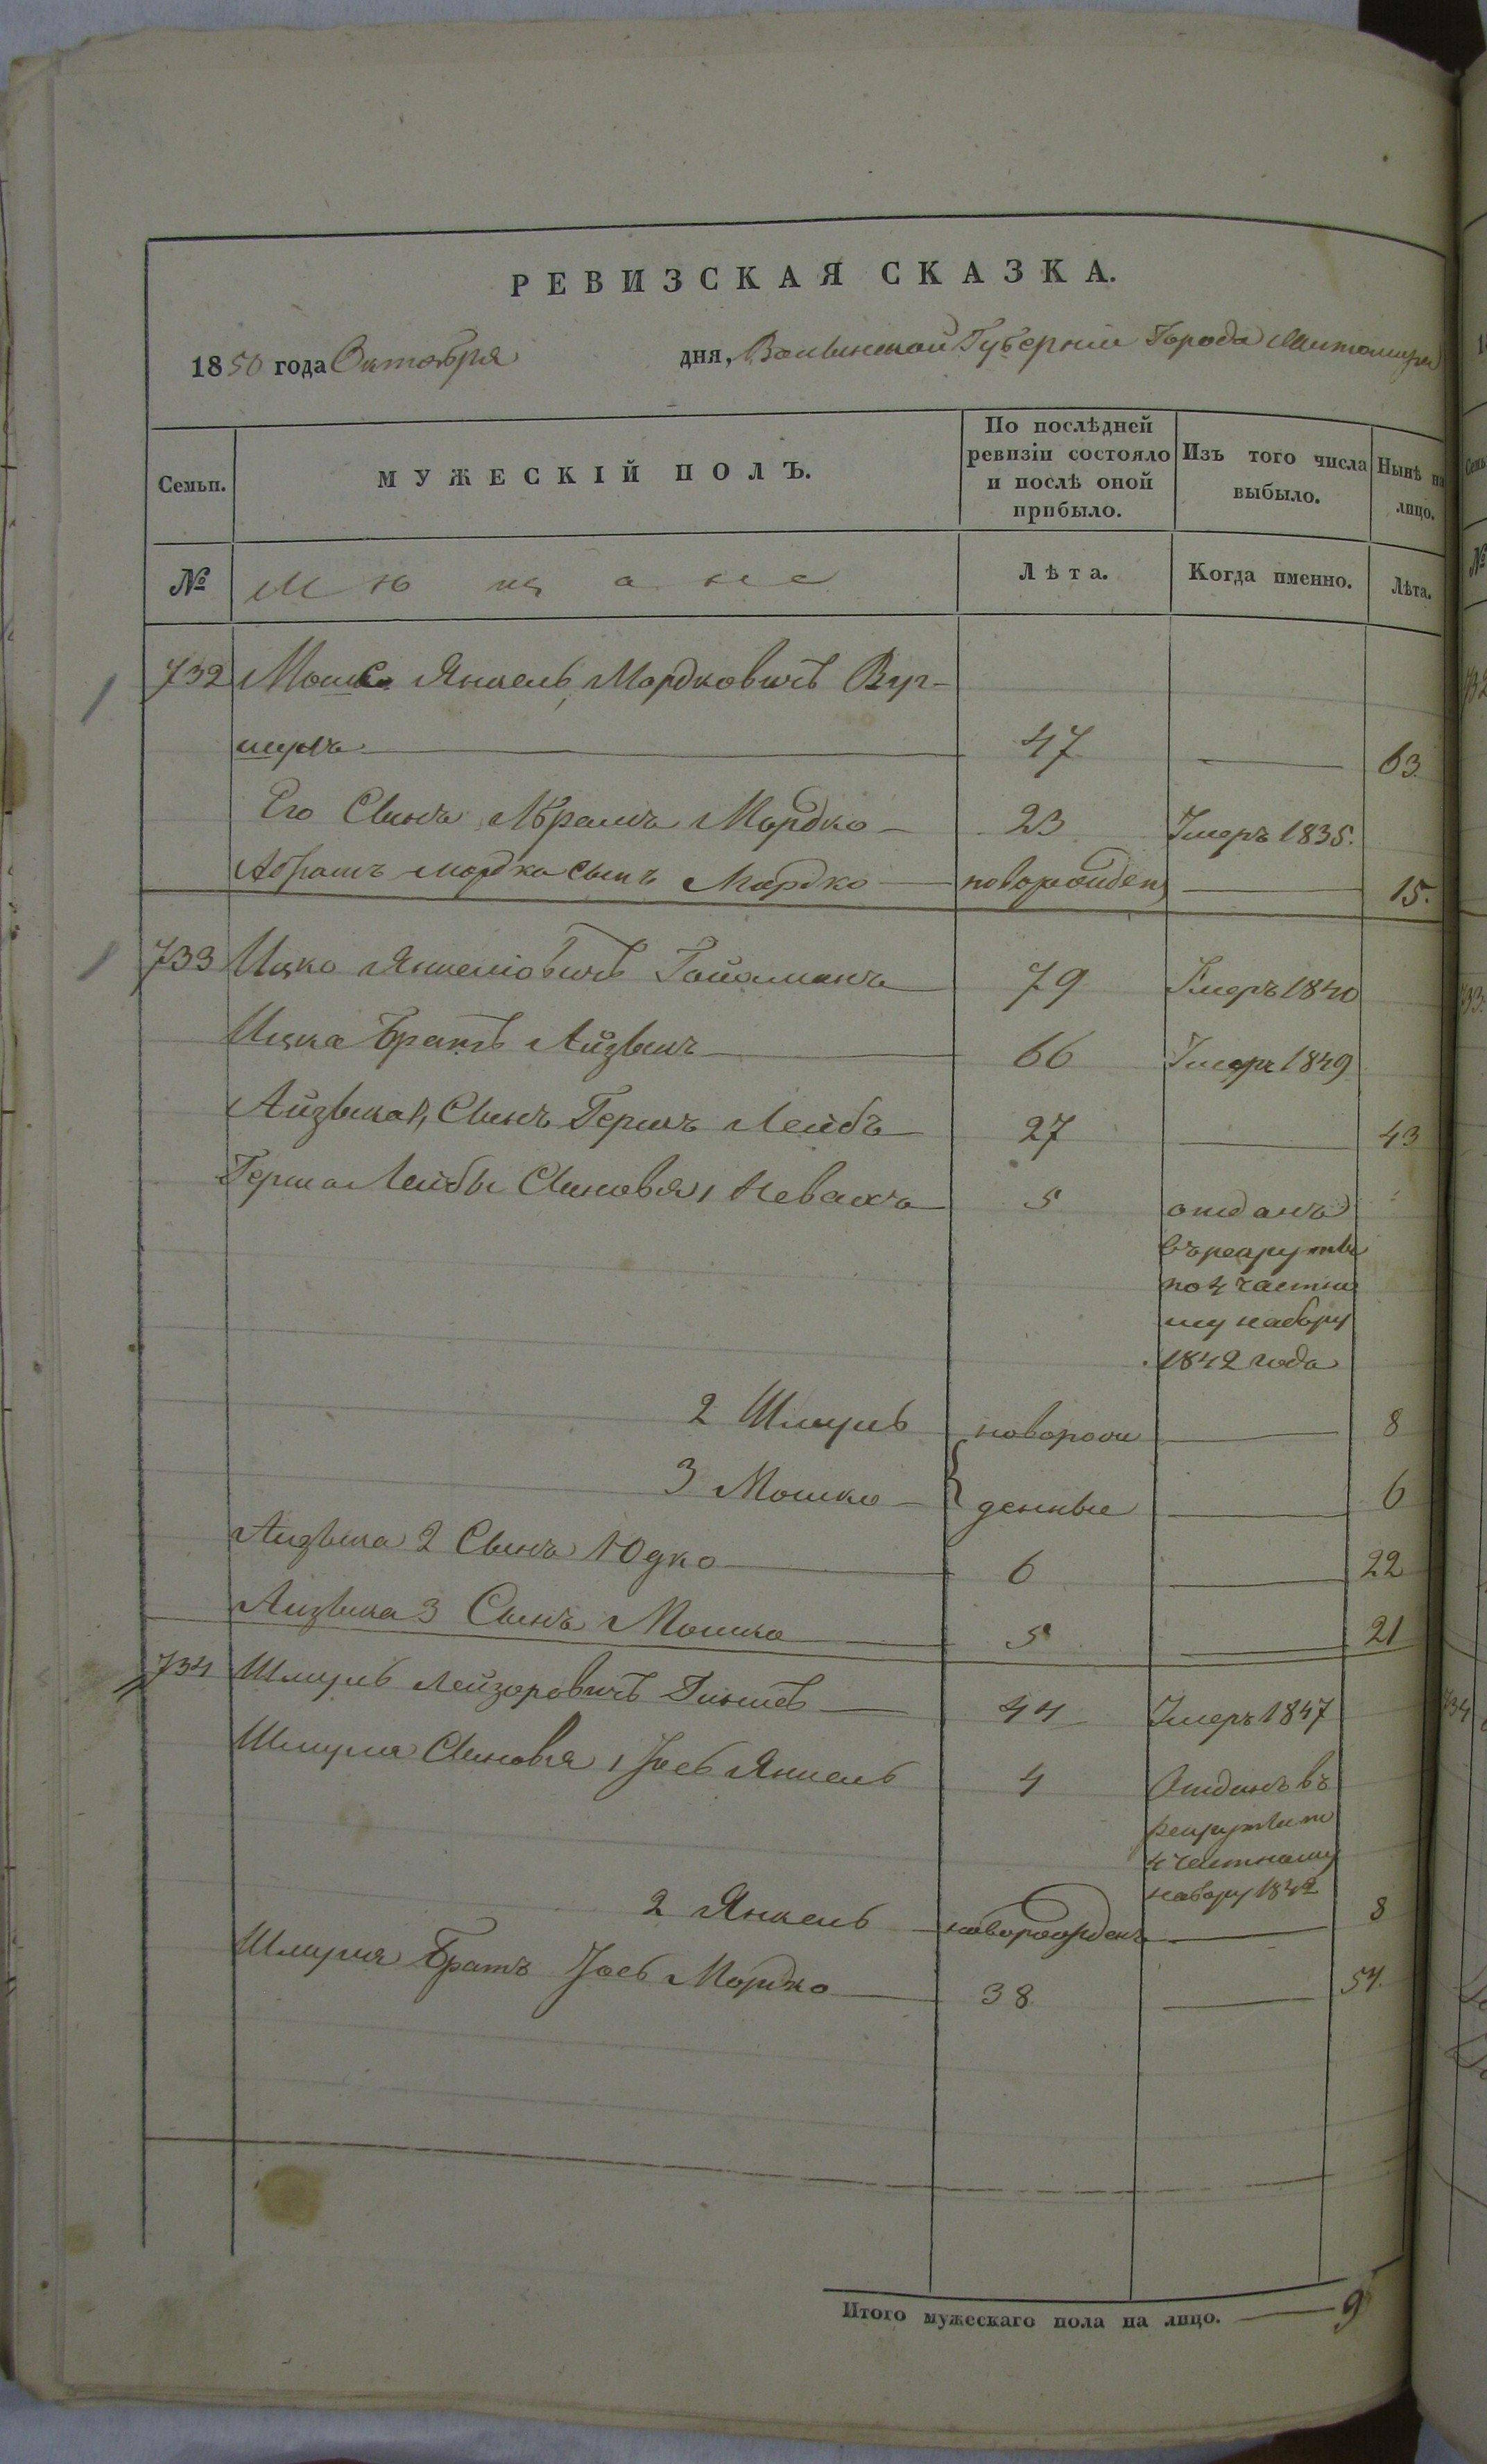 РЕВИЗСКАЯ СКАЗКА.
1850 года Октября дня, Волынской Губерніи Города Житомира
Семьи. МУЖЕСКІЙ ПОЛЪ. По послѣдней ревизіи состояло и послѣ оной прибыло. Изъ того числа выбыло. Нынѣ на лицо.
№ Мѣщане Лѣта. Когда именно. Лѣта.
732 Мошко Янкель Мордковичъ Вур-
47 63
Его Сынъ Абрамъ Мордко 23 Умеръ 1835.
Абрамъ Мордка Сынъ Мордко новорожден 15.
733 Ицко Янкеліовичъ 79 Умеръ 1840
Ицка Братъ Айзыкъ 66 Умеръ 1849
Айзыка 1, Сынъ Гершъ Лейбъ 27 43
Герша Лейбы Сыновья 1 Невахъ 5 отданъ
въ рекруты
по 4 частно
му набору
1842 года
2 Шмуль новорож 8
3 Мошко денные 6
Айзыка 2 Сынъ Юдко 6 22
Айзыка 3 Сынъ Мошко 5 21
734 Шмуль Лейзоровичъ 44 Умеръ 1847
Шмуля Сыновья 1 Іось Янкель 4 Отданъ въ
рекруты по
4 частному
набору 1842
2 Янкель новорожденъ 8
Шмуля Братъ Іось Мордко 38 54.
Итого мужескаго пола на лицо. 9